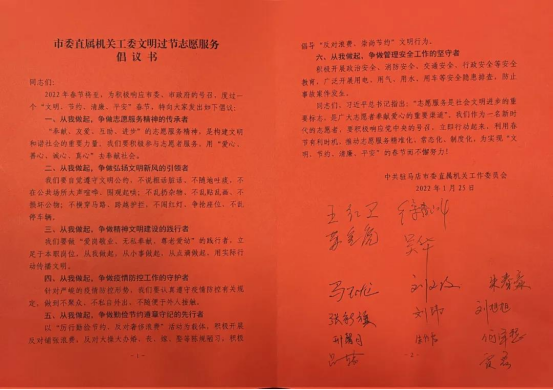 市委直属机关工委文明过节志愿服务
倡议书
同志们：
2022年春节将至，为积极响应市委、市政府的号召，度过一
个“文明、节约、清廉、平安”春节，特向大家发出如下倡议：
一、从我做起，争做志愿服务精神的传承者
“奉献、友爱、互助、进步”的志愿服务精神，是构建文明
和谐社会的重要力量。我们要积极参与志愿者服务，用“爱心、
善心、诚心、真心”去奉献社会。
二、从我做起，争做弘扬文明新风的引领者
我们要自觉遵守文明公约，不说粗话脏话、不随地吐痰，不
在公共场所大声喧哗、围观起哄；不乱扔杂物、不乱贴乱画、不
损坏公物；不横穿马路、跨越护栏、不闯红灯、争抢座位，不乱
停车辆。
三、从我做起，争做精神文明建设的践行者
我们要做“爱岗敬业、无私奉献、尊老爱幼”的践行者，立
足于本职岗位，从我做起，从小事做起，从点滴做起，用实际行
动传播文明。
四、从我做起，争做疫情防控工作的守护者
针对严峻的疫情防控形势，我们要认真遵守疫情防控有关规
定，做到不聚众，不私自外出，不随便于外人接触。
五、从我做起，争做勤俭节约清廉守记的先行者
以“厉行勤俭节约、反对奢侈浪费”活动为载体，积极开展
反对铺张浪费、反对大操大办婚、丧、嫁、娶等陈规陋习，积极
- 1 -
倡导“反对浪费、崇尚节约”文明行为。
六、从我做起，争做管理安全工作的坚守者
积极开展政治安全、消防安全、交通安全、行政安全等安全
教育，广泛开展用电、用气、用水、用车等安全隐患排查，防止
事故案件发生。
同志们，习近平总书记指出：“志愿服务是社会文明进步的重
要标志，是广大志愿者奉献爱心的重要渠道”。我们作为一名新时
代的志愿者，要积极响应党中央的号召，立即行动起来，利用春
节有利时机，推动志愿服务精准化、常态化、制度化，为实现“文
明、节约、清廉、平安”的春节而不懈努力！
中共驻马店市委直属机关工作委员会
2022年1月25日
王红卫
吴华
刘伟
- 2 -